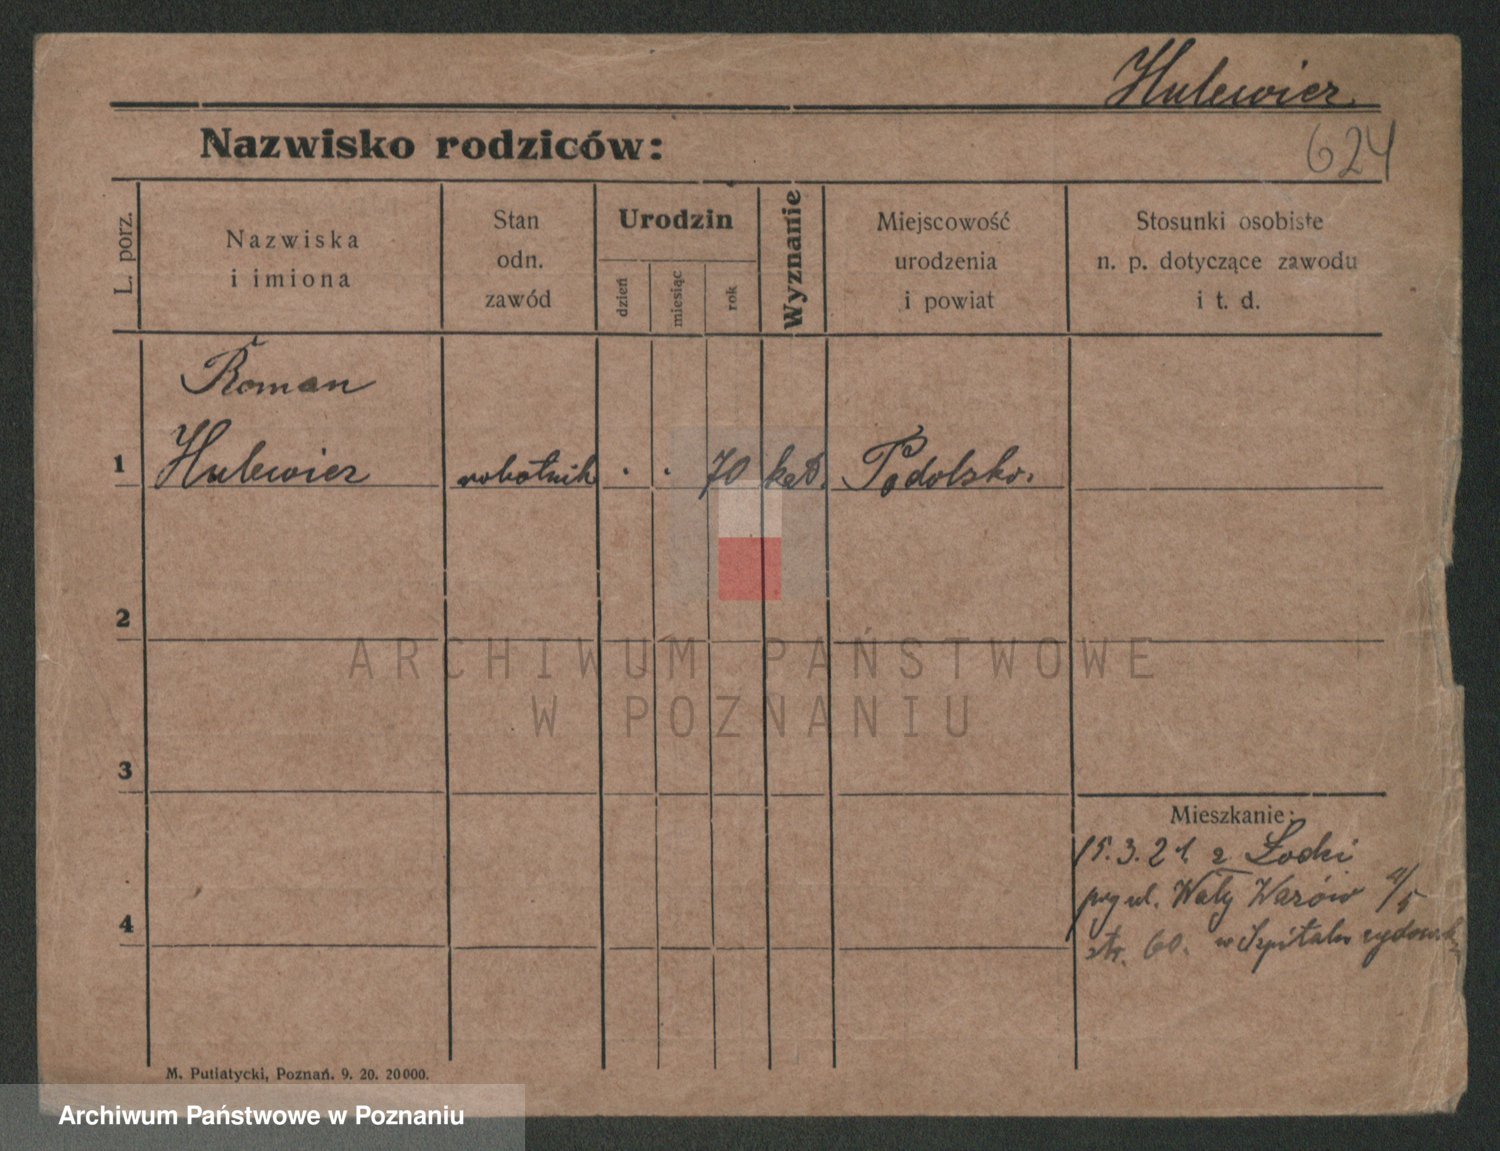 Hulewicz
624
Nazwisko rodziców:
L. porz.
Nazwiska
i imiona
Stan
odn.
zawód
Urodzin
dzień
miesiąc
rok
Wyznanie
Miejscowość
urodzenia
i powiat
Stosunki osobiste
n. p. dotyczące zawodu
i t. d.
Roman
1 Hulewicz robotnik . . 70 kat. Podolsko.
2
3
4
Mieszkanie:
15.3.21. z Łodzi
przy ul. Wały
str. 60. w Szpitalu żydowsk
M. Putiatycki, Poznań. 9. 20. 20000.
ARCHIWUM PAŃSTWOWE
W POZNANIU
Archiwum Państwowe w Poznaniu